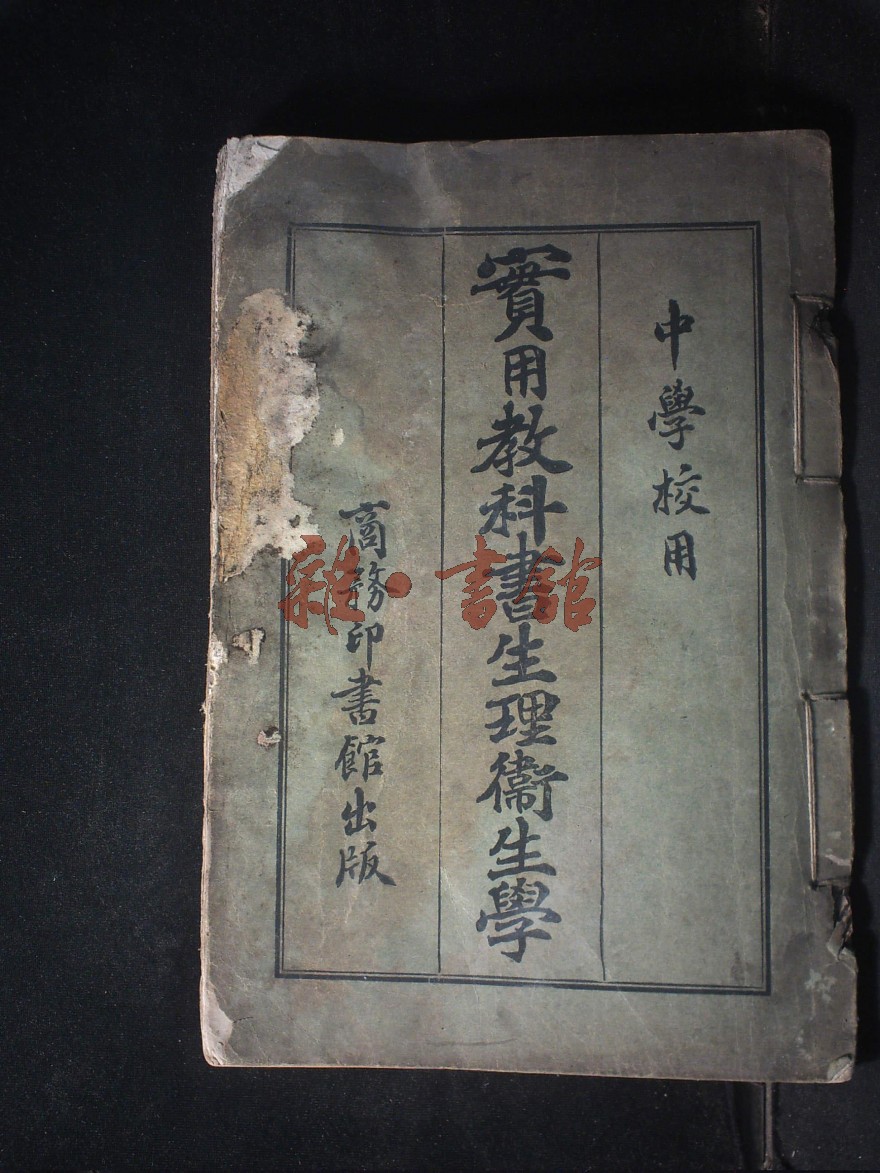 中學校用
實用教科書生理衞生學
商務印書館出版
雜·書館